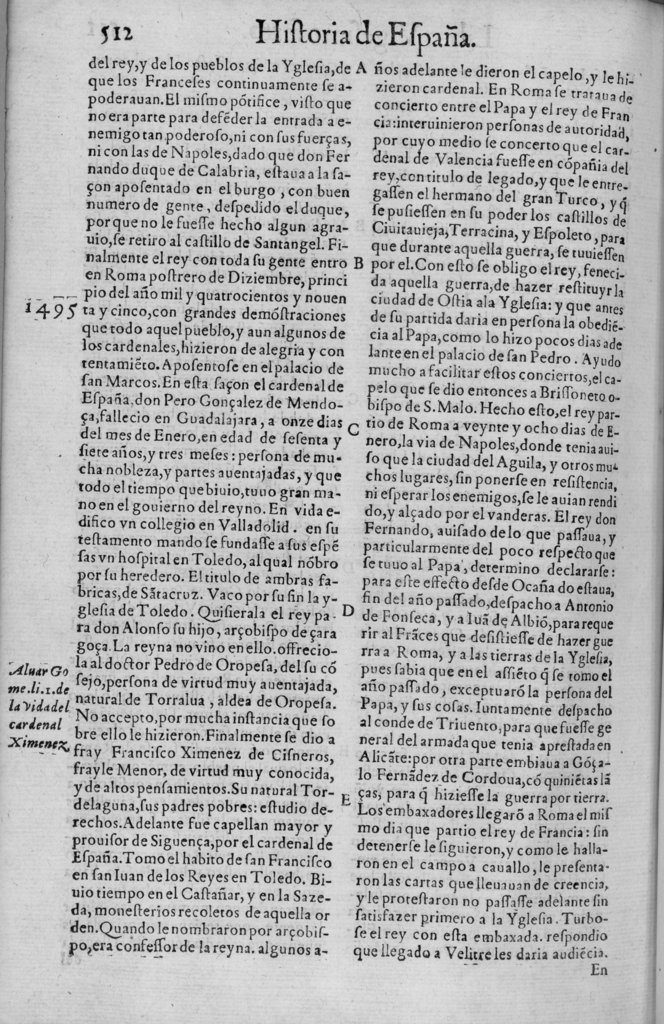 512 Historia de España.
del rey, y de los pueblos de la Yglesia, de
que los Franceses continuamente se a-
poderauan. El mismo pótifice, visto que
no era parte para deféder la entrada a e-
nemigo tan poderoso, ni con sus fuerças,
ni con las de Napoles, dado que don Fer
nando duque de Calabria, estaua a la sa-
çon aposentado en el burgo, con buen
numero de gente, despedido el duque,
porque no le fuesse hecho algun agra-
uio, se retiro al castillo de Santangel. Fi-
nalmente el rey con toda su gente entro
en Roma postrero de Diziembre, princi
pio del año mil y quatrocientos y nouen
1495
ta y cinco, con grandes demóstraciones
que todo aquel pueblo, y aun algunos de
los cardenales, hizieron de alegria y con
tentamiéto. Aposentose en el palacio de
san Marcos. En esta saçon el cardenal de
España, don Pero Gonçalez de Mendo-
ça, fallecio en Guadalajara, a onze dias
del mes de Enero, en edad de sesenta y
siete años, y tres meses: persona de mu-
cha nobleza, y partes auentajadas, y que
todo el tiempo que biuio, tuuo gran ma-
no en el gouierno del reyno. En vida e-
difico vn collegio en Valladolid. en su
testamento mando se fundasse a sus espé
sas vn hospital en Toledo, al qual nóbro
por su heredero. El titulo de ambras fa-
bricas, de Sátacruz. Vaco por su fin la y-
glesia de Toledo. Quisierala el rey pa-
ra don Alonso su hijo, arçobispo de çara
goça. La reyna no vino en ello. offrecio-
la al doctor Pedro de Oropesa, del su có
sejo, persona de virtud muy auentajada,
natural de Torralua, aldea de Oropesa.
No accepto, por mucha instancia que so
bre ello le hizieron. Finalmente se dio a
fray Francisco Ximenez de Cisneros,
frayle Menor, de virtud muy conocida,
y de altos pensamientos. Su natural Tor-
delaguna, sus padres pobres: estudio de-
rechos. Adelante fue capellan mayor y
prouisor de Siguença, por el cardenal de
España. Tomo el habito de san Francisco
en san Iuan de los Reyes en Toledo. Bi-
uio tiempo en el Castañar, y en la Saze-
da, monesterios recoletos de aquella or
den. Quando le nombraron por arçobis-
po, era confessor de la reyna. algunos a-
Aluar Go
me. li. 1. de
la vida del
cardenal
Ximenez,
A
B
C
D
E
ños adelante le dieron el capelo, y le hi-
zieron cardenal. En Roma se trataua de
concierto entre el Papa y el rey de Fran
cia: interuinieron personas de autoridad,
por cuyo medio se concerto que el car-
denal de Valencia fuesse en cópañia del
rey, con titulo de legado, y que le entre-
gassen el hermano del gran Turco, y q̃
se pusiessen en su poder los castillos de
Ciuitauieja, Terracina, y Espoleto, para
que durante aquella guerra, se tuuiessen
por el. Con esto se obligo el rey, feneci-
da aquella guerra, de hazer restituyr la
ciudad de Ostia ala Yglesia: y que antes
de su partida daria en persona la obedié-
cia al Papa, como lo hizo pocos dias ade
lante en el palacio de san Pedro. Ayudo
mucho a facilitar estos conciertos, el ca-
pelo que se dio entonces a Brissoneto o-
bispo de S. Malo. Hecho esto, el rey par-
tio de Roma a veynte y ocho dias de E-
nero, la via de Napoles, donde tenia aui-
so que la ciudad del Aguila, y otros mu-
chos lugares, sin ponerse en resistencia,
ni esperar los enemigos, se le auian rendi
do, y alçado por el vanderas. El rey don
Fernando, auisado de lo que passaua, y
particularmente del poco respecto que
se tuuo al Papa, determino declararse:
para este effecto desde Ocaña do estaua,
fin del año passado, despacho a Antonio
de Fonseca, y a Iuã de Albió, para reque
rir al Fráces que desistiesse de hazer gue
rra a Roma, y a las tierras de la Yglesia,
pues sabia que en el assiéto q̃ se tomo el
año passado, exceptuaró la persona del
Papa, y sus cosas. Iuntamente despacho
al conde de Triuento, para que fuesse ge
neral del armada que tenia aprestada en
Alicáte: por otra parte embiaua a Góça-
lo Fernádez de Cordoua, có quiniétas lá
ças, para q̃ hiziesse la guerra por tierra.
Los embaxadores llegaró a Roma el mis
mo dia que partio el rey de Francia: sin
detenerse le siguieron, y como le halla-
ron en el campo a cauallo, le presenta-
ron las cartas que lleuauan de creencia,
y le protestaron no passasse adelante sin
satisfazer primero a la Yglesia. Turbo-
se el rey con esta embaxada. respondio
que llegado a Velitre les daria audiécia.
En